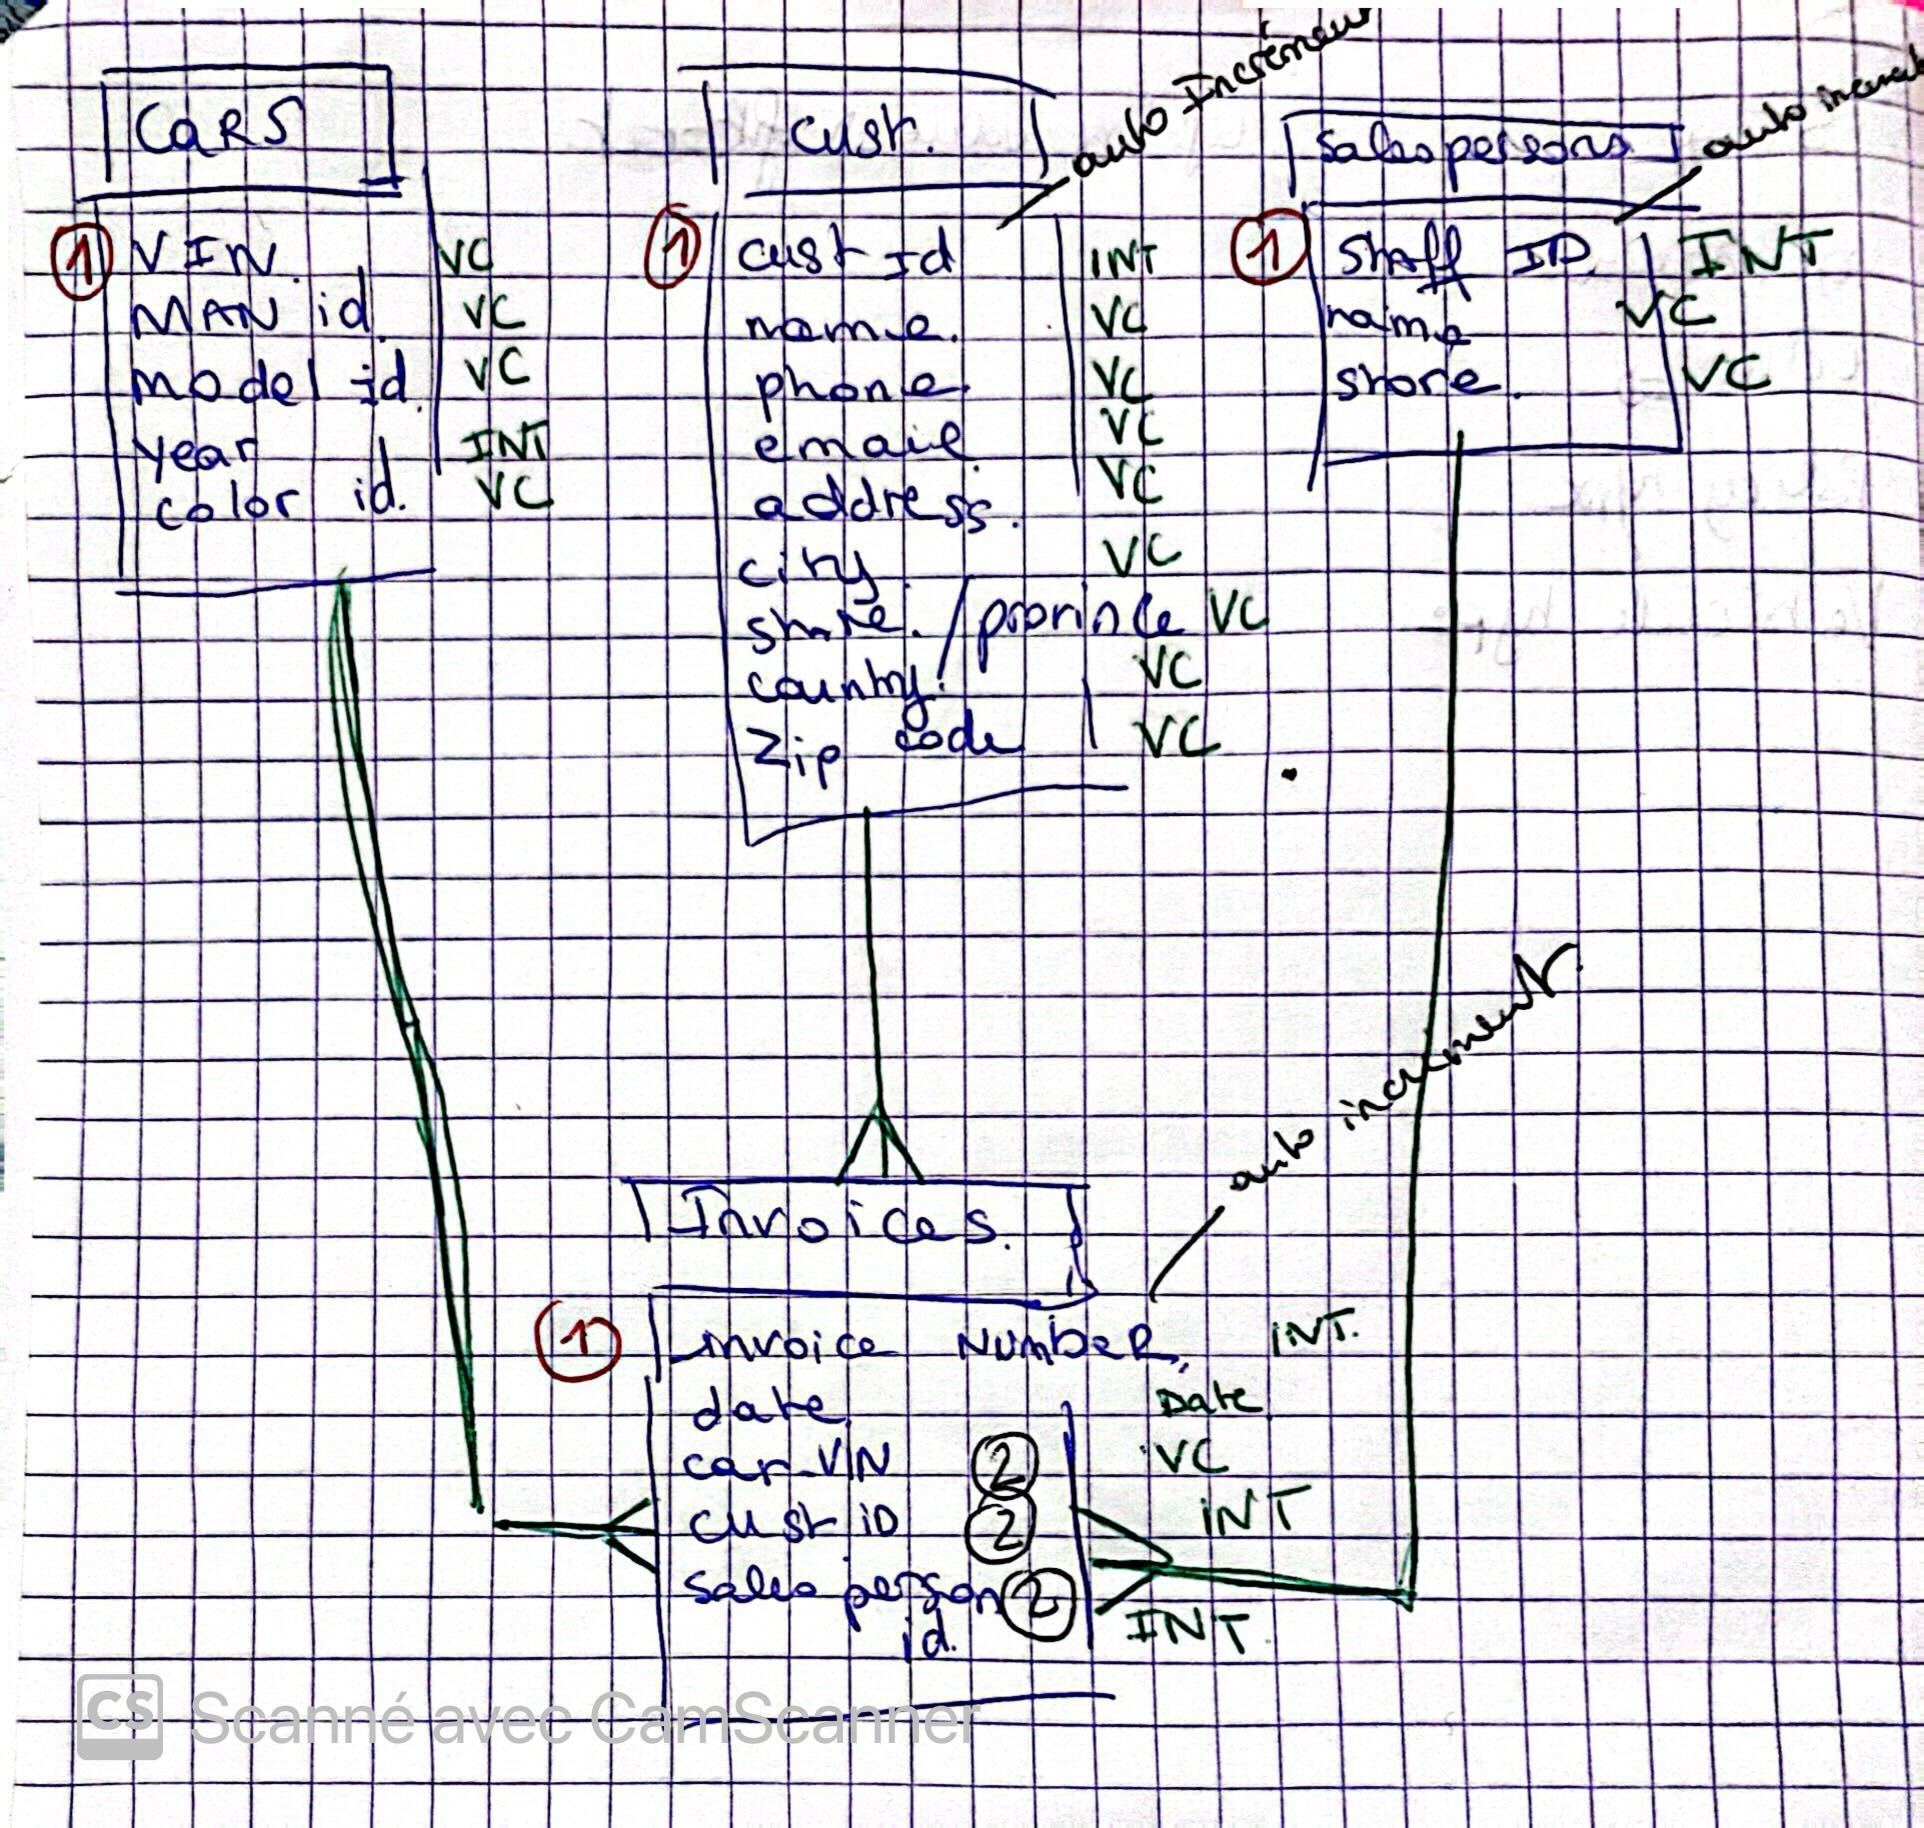 CARS
① VIN. VC
MAN id. VC
model id. VC
year INT
color id. VC
cust.
auto Incrément
① cust Id INT
name. VC
phone. VC
email. VC
address. VC
city. VC
state. / province VC
country. VC
Zip code VC
Salespersons
auto increment
① Staff ID INT
name VC
store. VC
Invoices.
auto increment.
① invoice NumbeR. INT.
date Date
car-VIN ② VC
cust iD ② INT
sales person ② INT.
id.
CS Scanné avec CamScanner